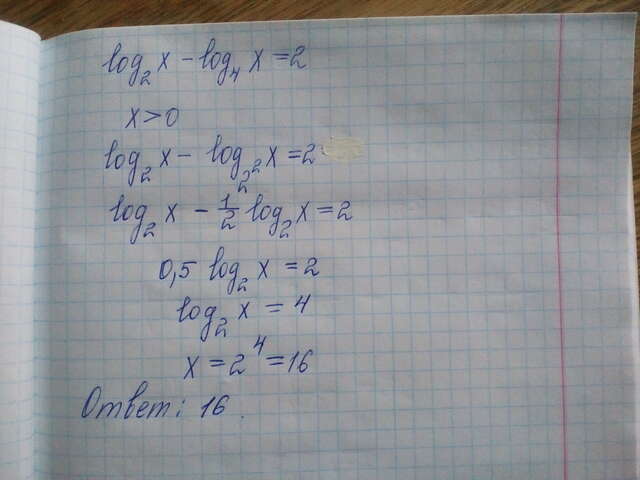 log₂x - log₄x = 2
x > 0
log₂x - log_{2²}x = 2
log₂x - 1/2 log₂x = 2
0,5 log₂x = 2
log₂x = 4
x = 2⁴ = 16
Ответ: 16.